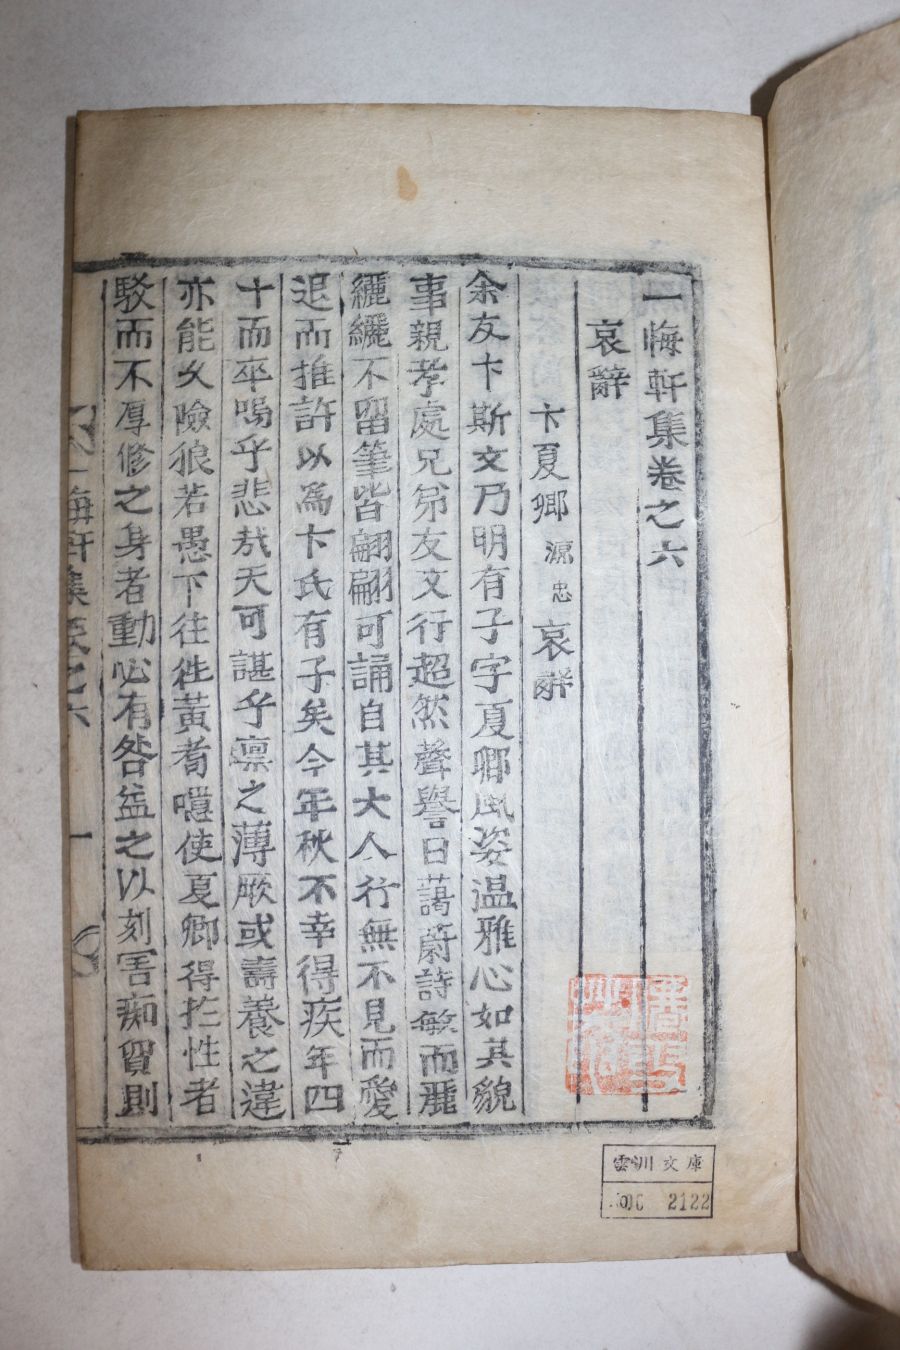 一悔軒集卷之六
哀辭
卞夏卿源忠哀辭
余友卞斯文乃明有子字夏卿風姿温雅心如其貌
事親孝處兄弟友文行超然聲譽日藹蔚詩敏而麗
纚纚不留筆皆翩翩可誦自其大人行無不見而愛
退而推許以爲卞氏有子矣今年秋不幸得疾年四
十而卒嗚乎悲哉天可諶乎禀之薄厥或壽養之違
亦能久險狼若愚下往往黃耉噫使夏卿得於性者
駁而不厚修之身者動必有咎益之以刻害痴貿則
悔軒集卷之六
一
雲川文庫
2122